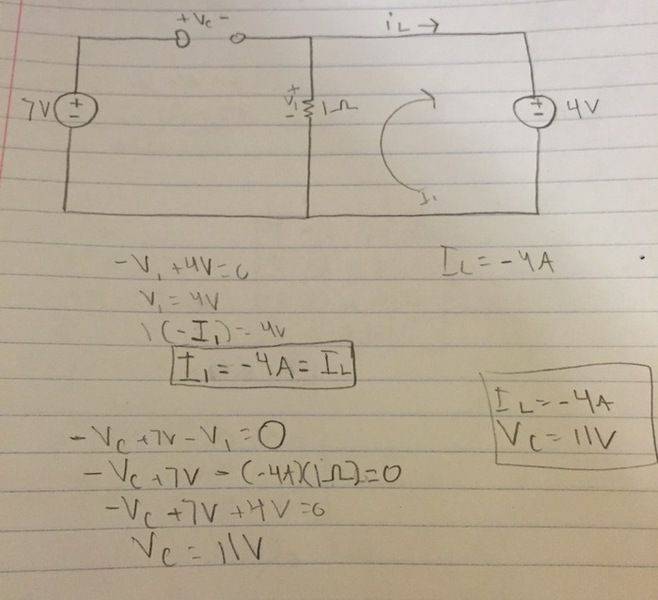 + Vc -
iL →
7V
+
-
+
V1
-
1Ω
+
-
4V
I1
-V1 + 4V = 0
V1 = 4V
1(-I1) = 4V
I1 = -4A = IL
IL = -4A
-Vc + 7V - V1 = 0
-Vc + 7V - (-4A)(1Ω) = 0
-Vc + 7V + 4V = 0
Vc = 11V
IL = -4A
Vc = 11V